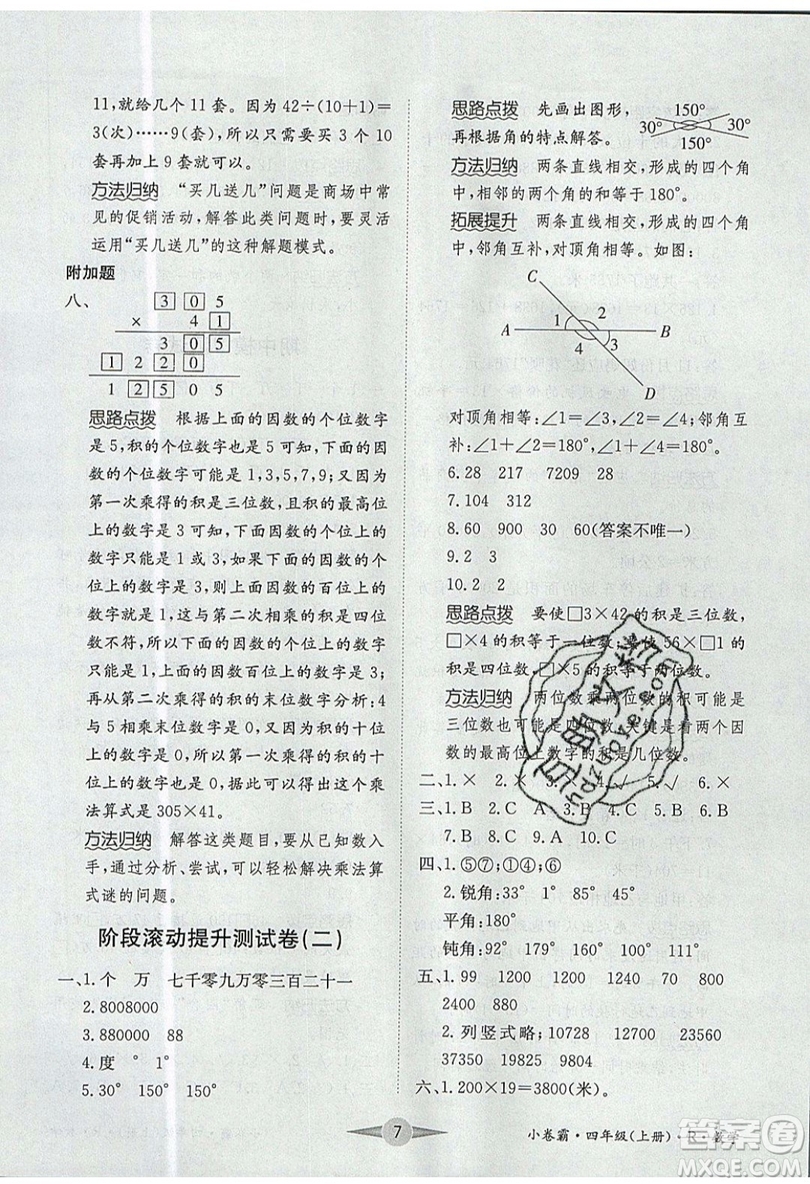 11,就给几个 11 套。因为 42÷(10+1)=
3(次)……9(套),所以只需要买 3 个 10
套再加上 9 套就可以了。
方法归纳 “买几送几”问题是商场中常
见的促销活动,解答此类问题时,要灵活
运用“买几送几”的这种解题模式。
附加题
八、 3 0 5
× 4 1
3 0 5
1 2 2 0
1 2 5 0 5
思路点拨 根据上面的因数的个位数字
是 5,积的个位数字也是 5,可知下面的因
数的个位数字可能是 1,3,5,7,9;又因为
第一次乘得的积是三位数,且积的最高位
上的数字是 3 可知,下面因数的个位上的
数字只能是 1 或 3,如果下面因数个位上
的数字是 3,则上面因数的百位上的数字
只能是 1,这与第二次相乘的积是四位
数不符,所以下面因数的个位上的数字
只能是 1,上面的因数百位上的数字是 3;
再从第二次乘得的积的末位数字分析:4
与 5 相乘末位数字是 0,又因为积的十位
上的数字是 0,所以第一次乘得的积的十
位上的数字是 0,依次推出其他的数。乘
法算式是 305×41。
方法归纳 解答这类题目,要从已知数入
手,通过分析、尝试,可以轻松解决乘法算
式谜的问题。
阶段滚动提升测试卷(二)
一、1.个 万 七千零九万零三百二十一
2.8008000
3.880000 88
4.度 ° 1°
5.30° 150° 150°
思路点拨 先画出图形,
再根据角的特点解答。
150°
30° 30°
150°
方法归纳 两条直线相交,形成的四个角
中,相邻的两个角的和等于 180°。
拓展提升 两条直线相交,形成的四个角
中,邻角互补,对顶角相等。如图:
C
1 2
A B
4 3
D
对顶角相等:∠1=∠3,∠2=∠4;邻角互
补:∠1+∠2=180°,∠1+∠4=180°。
6.28 217 7209 28
7.104 312
8.60 900 30 60(答案不唯一)
9.2 3
10.2 2
思路点拨 要使□3×42 的积是三位数,
□×4 的积等于一位数。要使 56×□1
的积是四位数,5×□的积等于两位数。
方法归纳 两位数乘两位数的积可能是
三位数也可能是四位数,关键是看两个因
数的最高位上数字的积是几位数。
二、1.× 2.× 3.× 4.√ 5.√ 6.×
三、1.B 2.C 3.A 4.C 5.B 6.B
7.B 8.C 9.A 10.C
四、1.⑤⑦;①④;⑥
2.锐角:33° 1° 85° 45°
平角:180°
钝角:92° 179° 160° 100° 111°
五、1.99 1200 1200 70 40 800
2400 880
2.列竖式略;10728 12700 23560
37350 19825 9804
六、1.200×19=3800(米)。
7
小卷霸·四年级(上册)·R·数学
答案圈
MXQE.COM